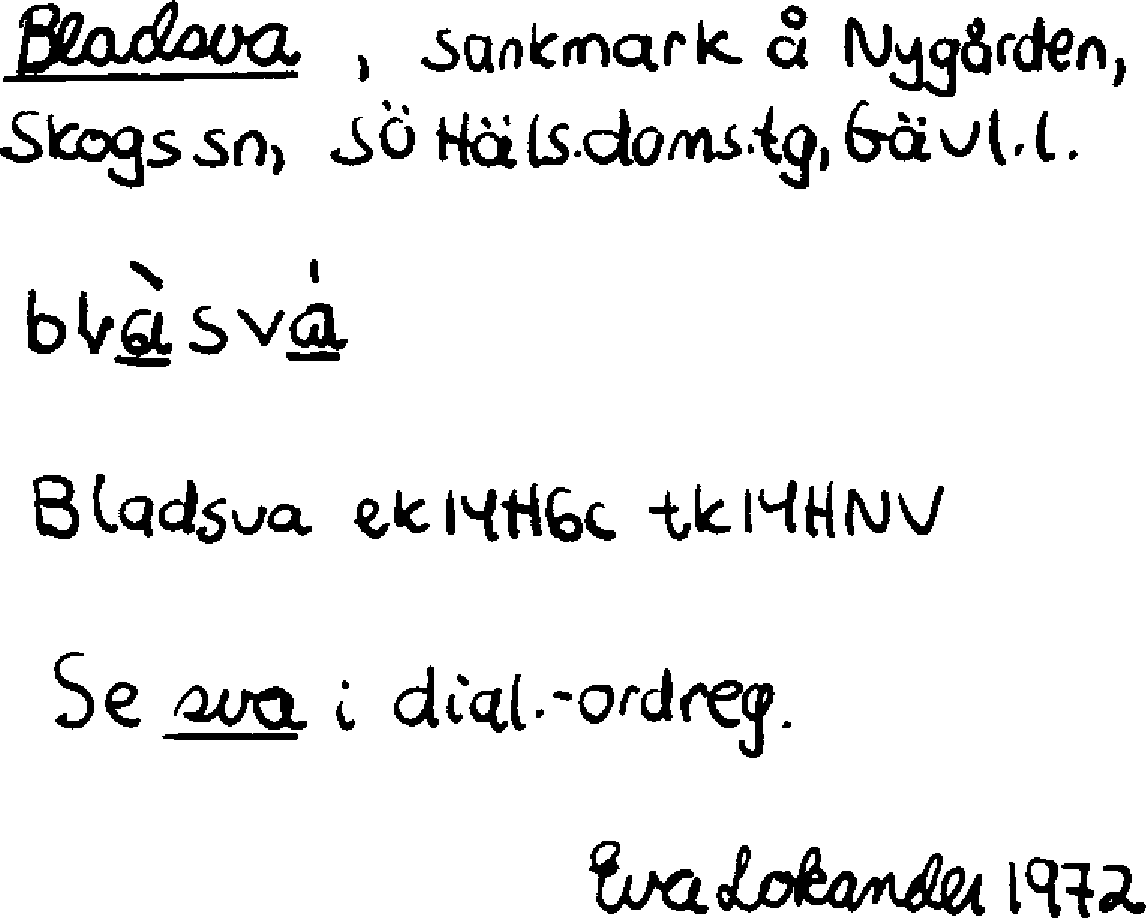 Bladsva, sankmark å Nygården,
Skogs sn, SÖ Häls.doms.tg, Gävl.l.
blàsvá
Bladsva ek 14H6c tk 14HNV
Se sva i dial.-ordreg.
Eva Lokander 1972